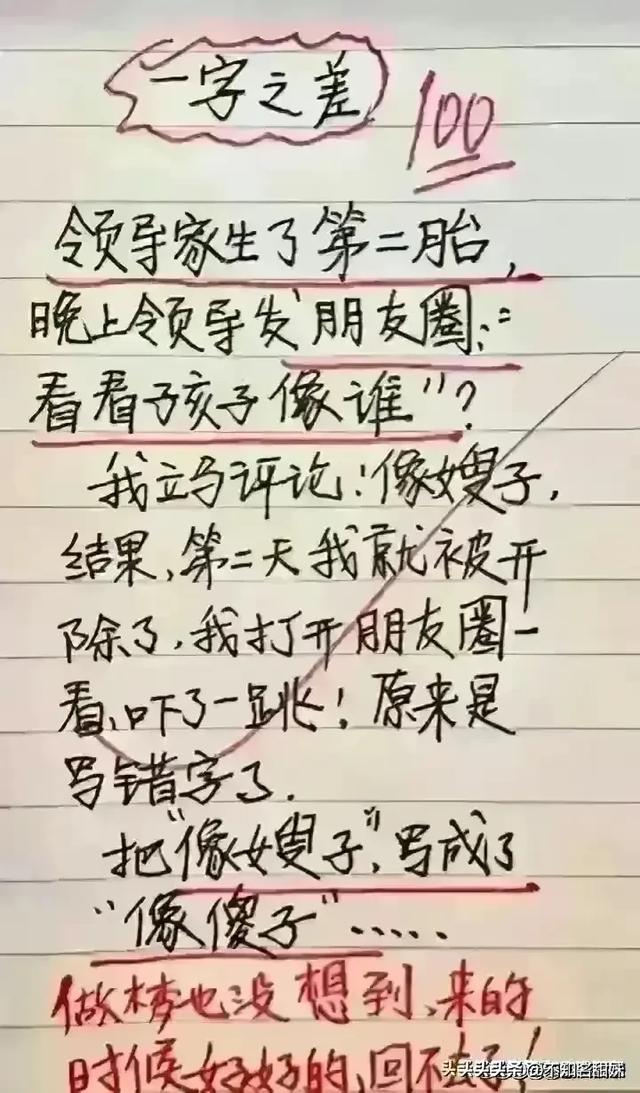 一字之差
100
领导家生了第二胎,
晚上领导发朋友圈:“
看看孩子像谁”?
我立马评论:像嫂子,
结果,第二天我就被开
除了,我打开朋友圈一
看,吓了一跳!原来是
写错字了.
把“像嫂子”,写成了
“像傻子”.....
做梦也没想到,来的
时候好好的,回不去了!